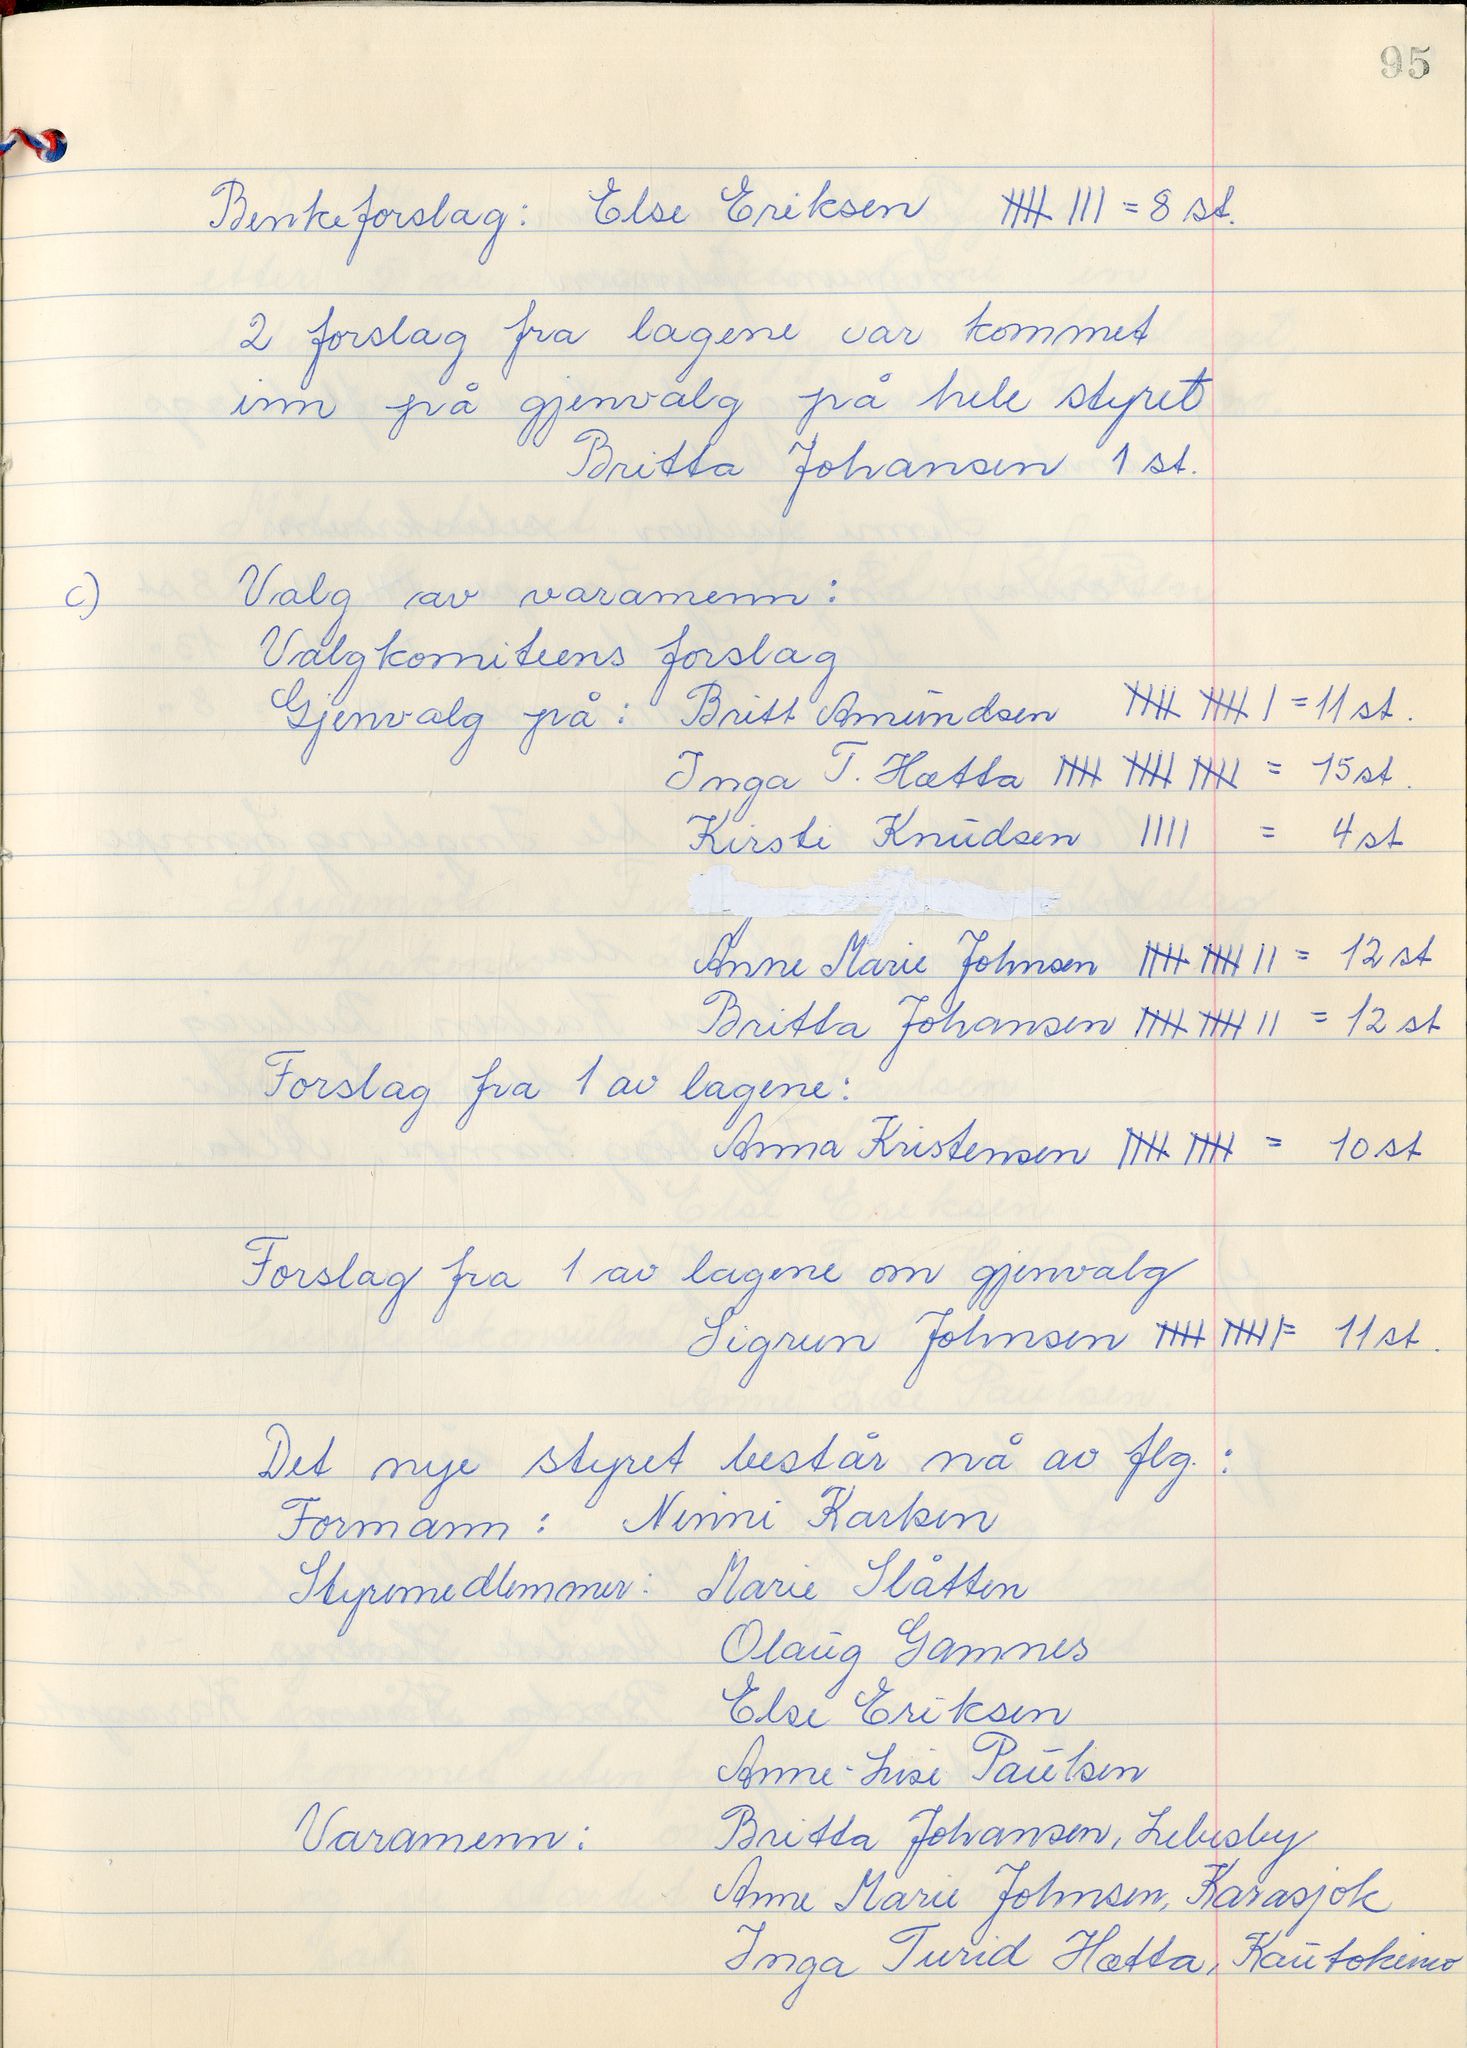 95
Benkeforslag: Else Eriksen 𝍸 III = 8 st.
2 forslag fra lagene var kommet
inn på gjenvalg på hele styret
Britta Johansen 1 st.
c) Valg av varamenn:
Valgkomiteens forslag
Gjenvalg på: Britt Amundsen 𝍸 𝍸 I = 11 st.
Inga T. Hætta 𝍸 𝍸 𝍸 = 15 st.
Kirsti Knudsen IIII = 4 st
Anne Marie Johnsen 𝍸 𝍸 II = 12 st
Britta Johansen 𝍸 𝍸 II = 12 st
Forslag fra 1 av lagene:
Anna Kristensen 𝍸 𝍸 = 10 st
Forslag fra 1 av lagene om gjenvalg
Sigrun Johnsen 𝍸 𝍸 I = 11 st.
Det nye styret består nå av flg.:
Formann: Ninni Karlsen
Styremedlemmer: Marie Slåtten
Olaug Gamnes
Else Eriksen
Anne-Lise Paulsen
Varamenn: Britta Johansen, Lebesby
Anne Marie Johnsen, Karasjok
Inga Turid Hætta, Kautokeino